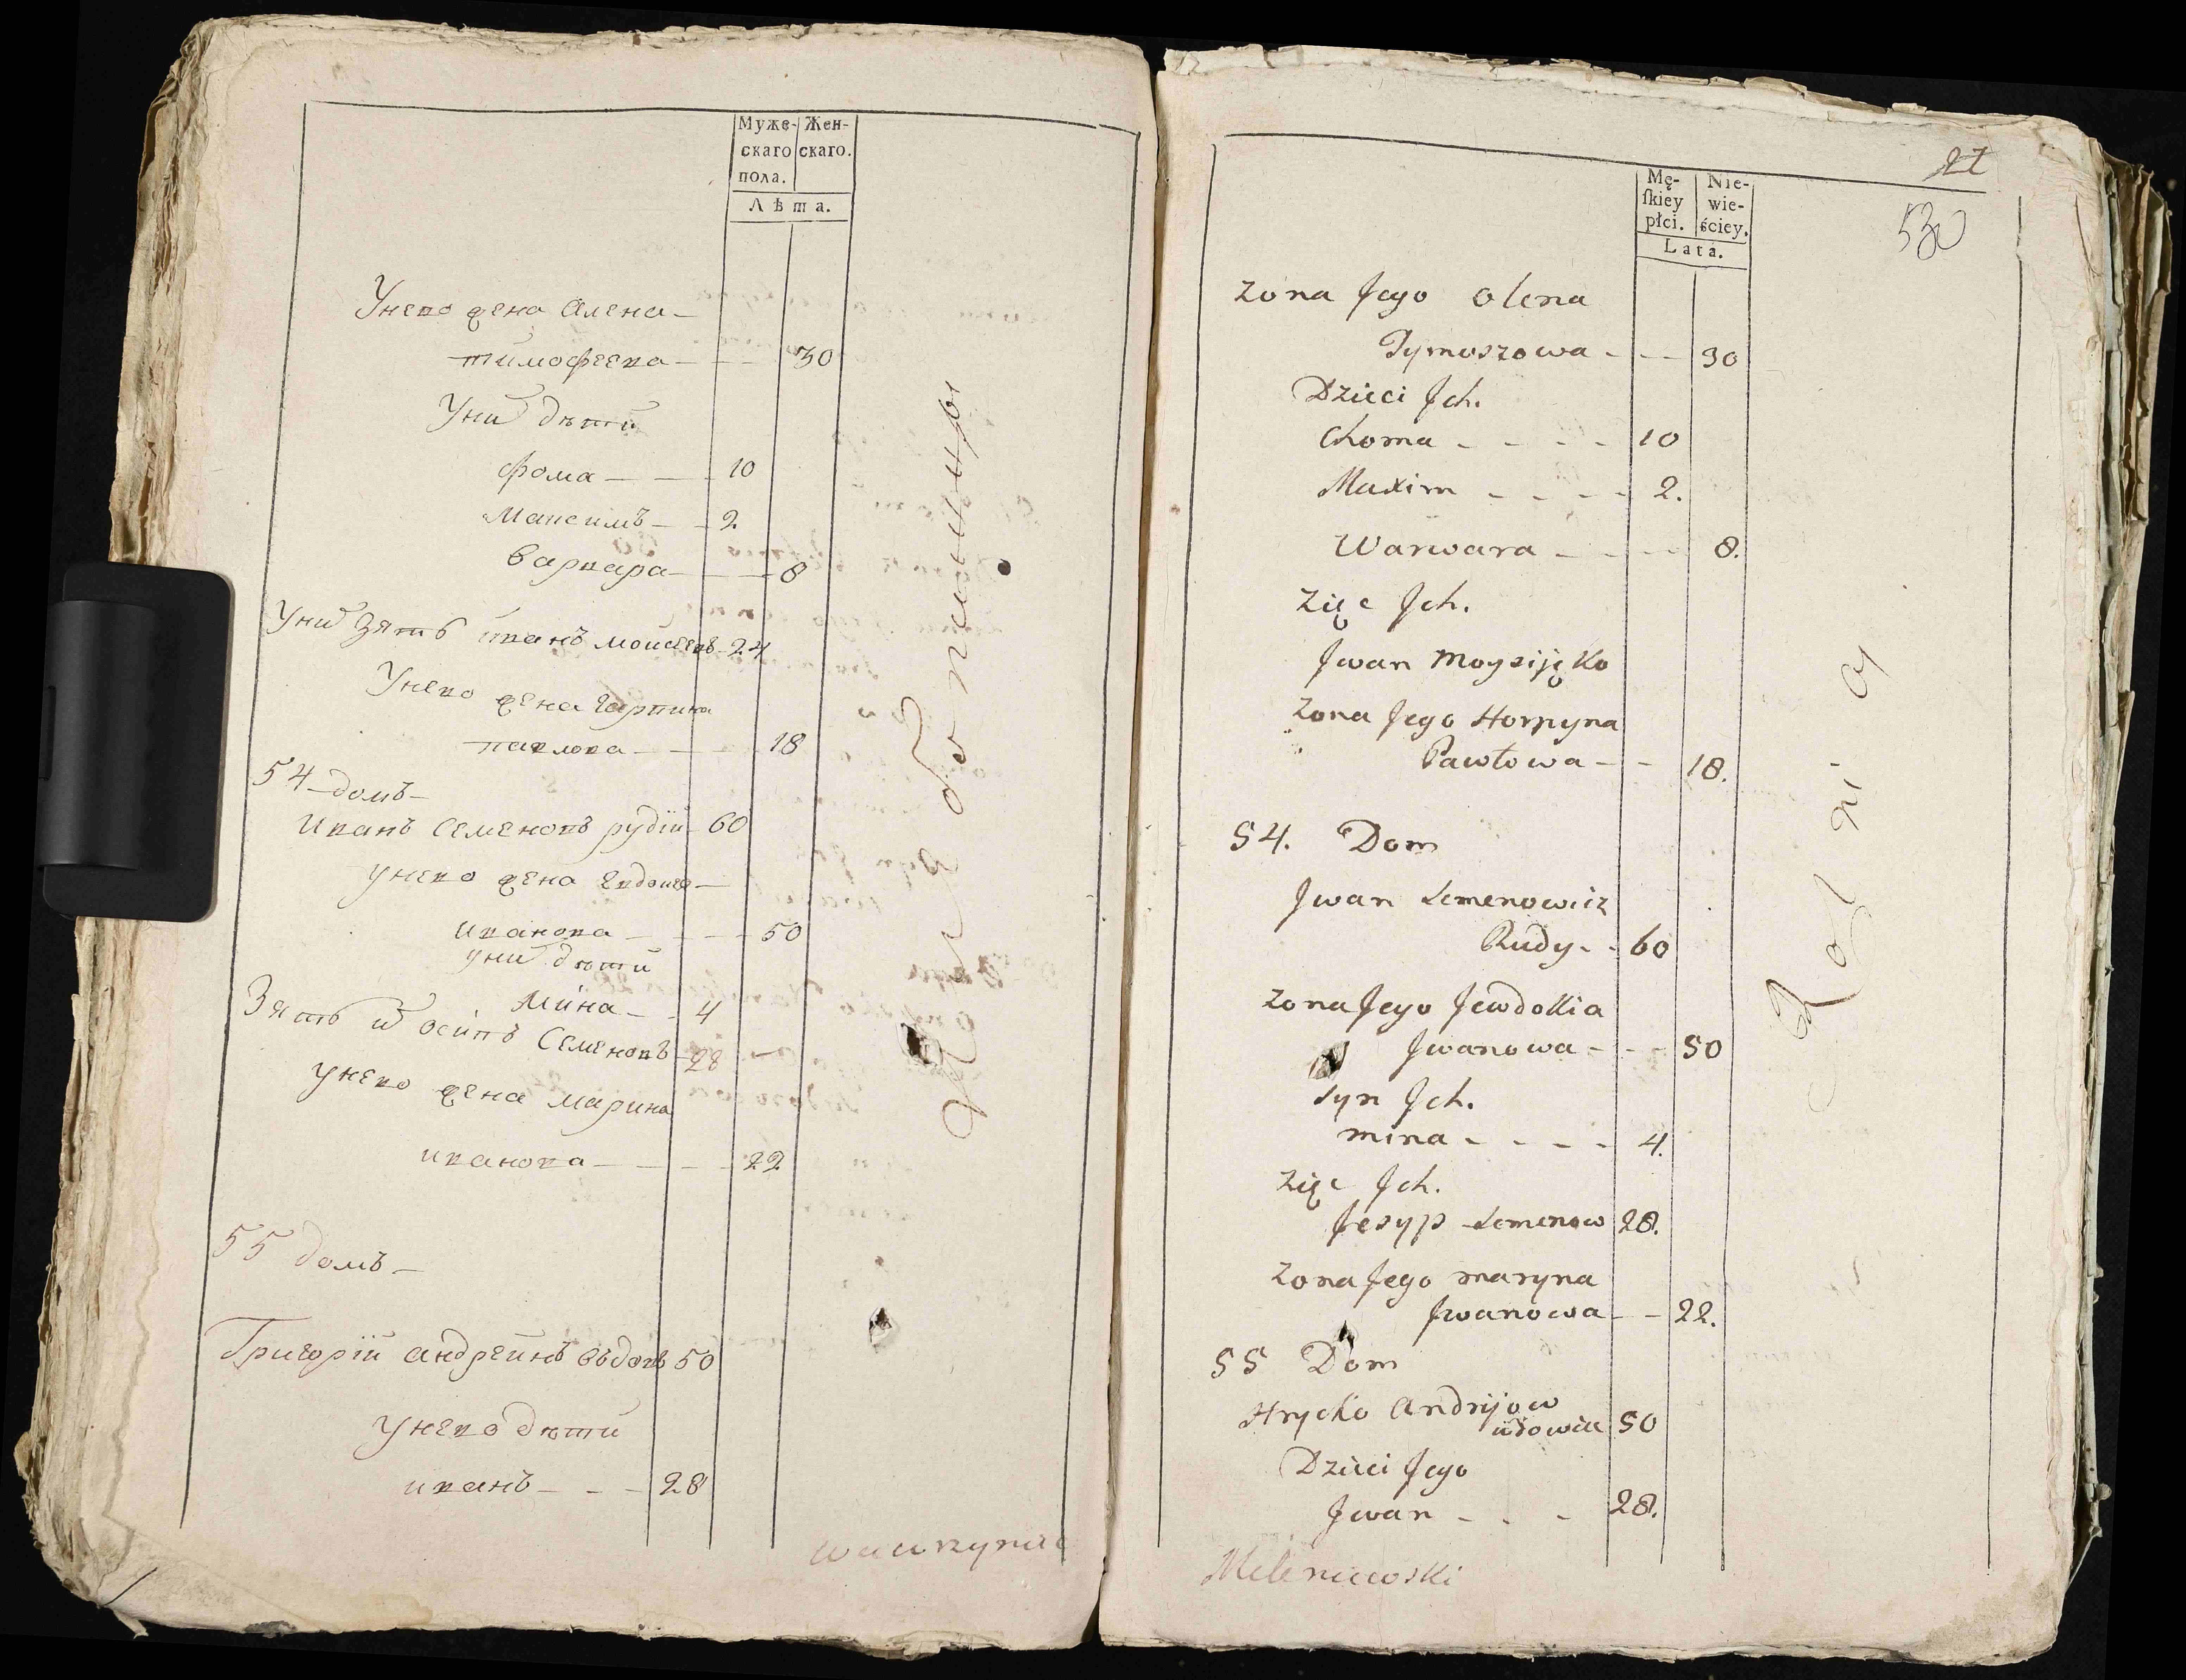 Муже- Жен-
скаго скаго.
пола.
Лѣта.
Унево жена Алена —
тимофеева — — 30
Уни дѣти
фома — — — 10
Максимъ — — 2
Варвара — — — 8
Уни зять иванъ моисеевъ 24
Унево жена Гарпина
павлова — — — 18
54 — домъ —
Иванъ Семеновъ рудїи 60
унево жена Евдокея —
иванова — — — 50
уни дѣти
Мина — — 4
Зять и осипъ Семеновъ — 28
унево жена марина
иванова — — — — 22
55 домъ —
Григорїй андреинъ вдовъ 50
Унево дѣти
иванъ — — — 28
wawrzyniec
27
530
Mę- Nie-
ſkiey wie-
płci. ściey.
Lata.
Zona Jego Olena
Tymoszowa - - - 30
Dzieci Jch.
Choma - - - - 10
Maxim - - - - 2.
Warwara - - - - 8.
Zięc Jch.
Jwan Moysiięko
Zona Jego Horpyna
Pawłowa - - 18.
54. Dom
Jwan Semenowicz
Rudy - - 60
Zona Jego Jewdokia
Jwanowa - - - 50
Syn Jch.
mina - - - - 4.
Zięc Jch.
Jesyp Semenow 28.
Zona Jego maryna
Jwanowa - - 22.
55 Dom
Hryćko Andrijow
udowiec 50
Dzieci Jego
Jwan - - - 28.